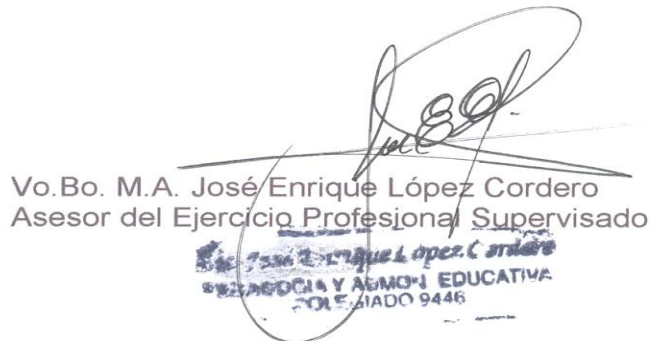 Vo.Bo. M.A. José Enrique López Cordero
Asesor del Ejercicio Profesional Supervisado
José Enrique López Cordero
PEDAGOGIA Y ADMON EDUCATIVA
COLEGIADO 9446